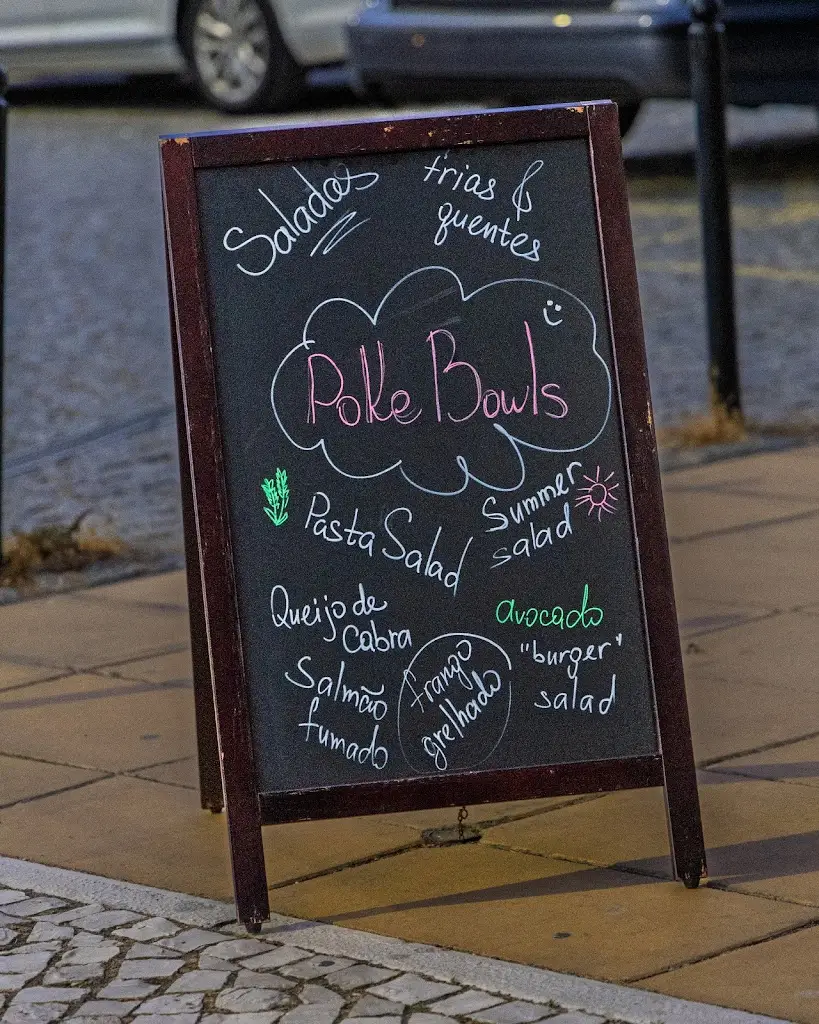 Saladas
frias &
quentes
Poke Bowls
Pasta Salad
Summer
salad
Queijo de
Cabra
avocado
"burger"
salad
Salmão
fumado
frango
grelhado